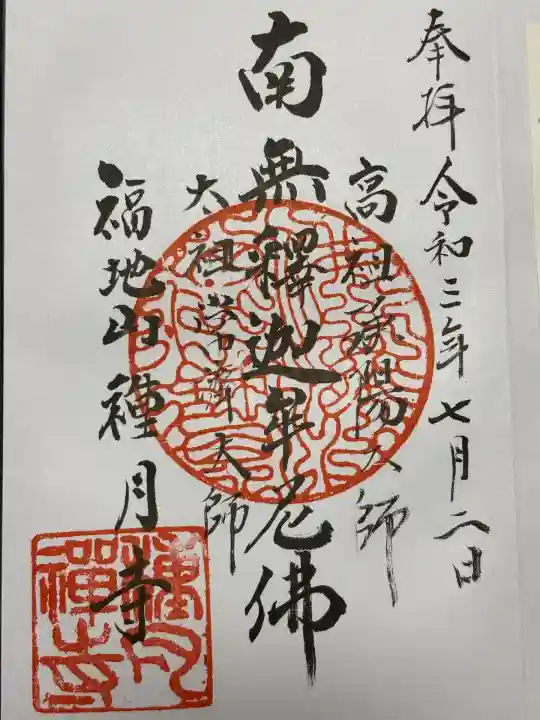 奉拝 令和三年七月二日
高祖承陽大師
南無釋迦牟尼佛
太祖常濟大師
福地山種月寺
種月
禅寺